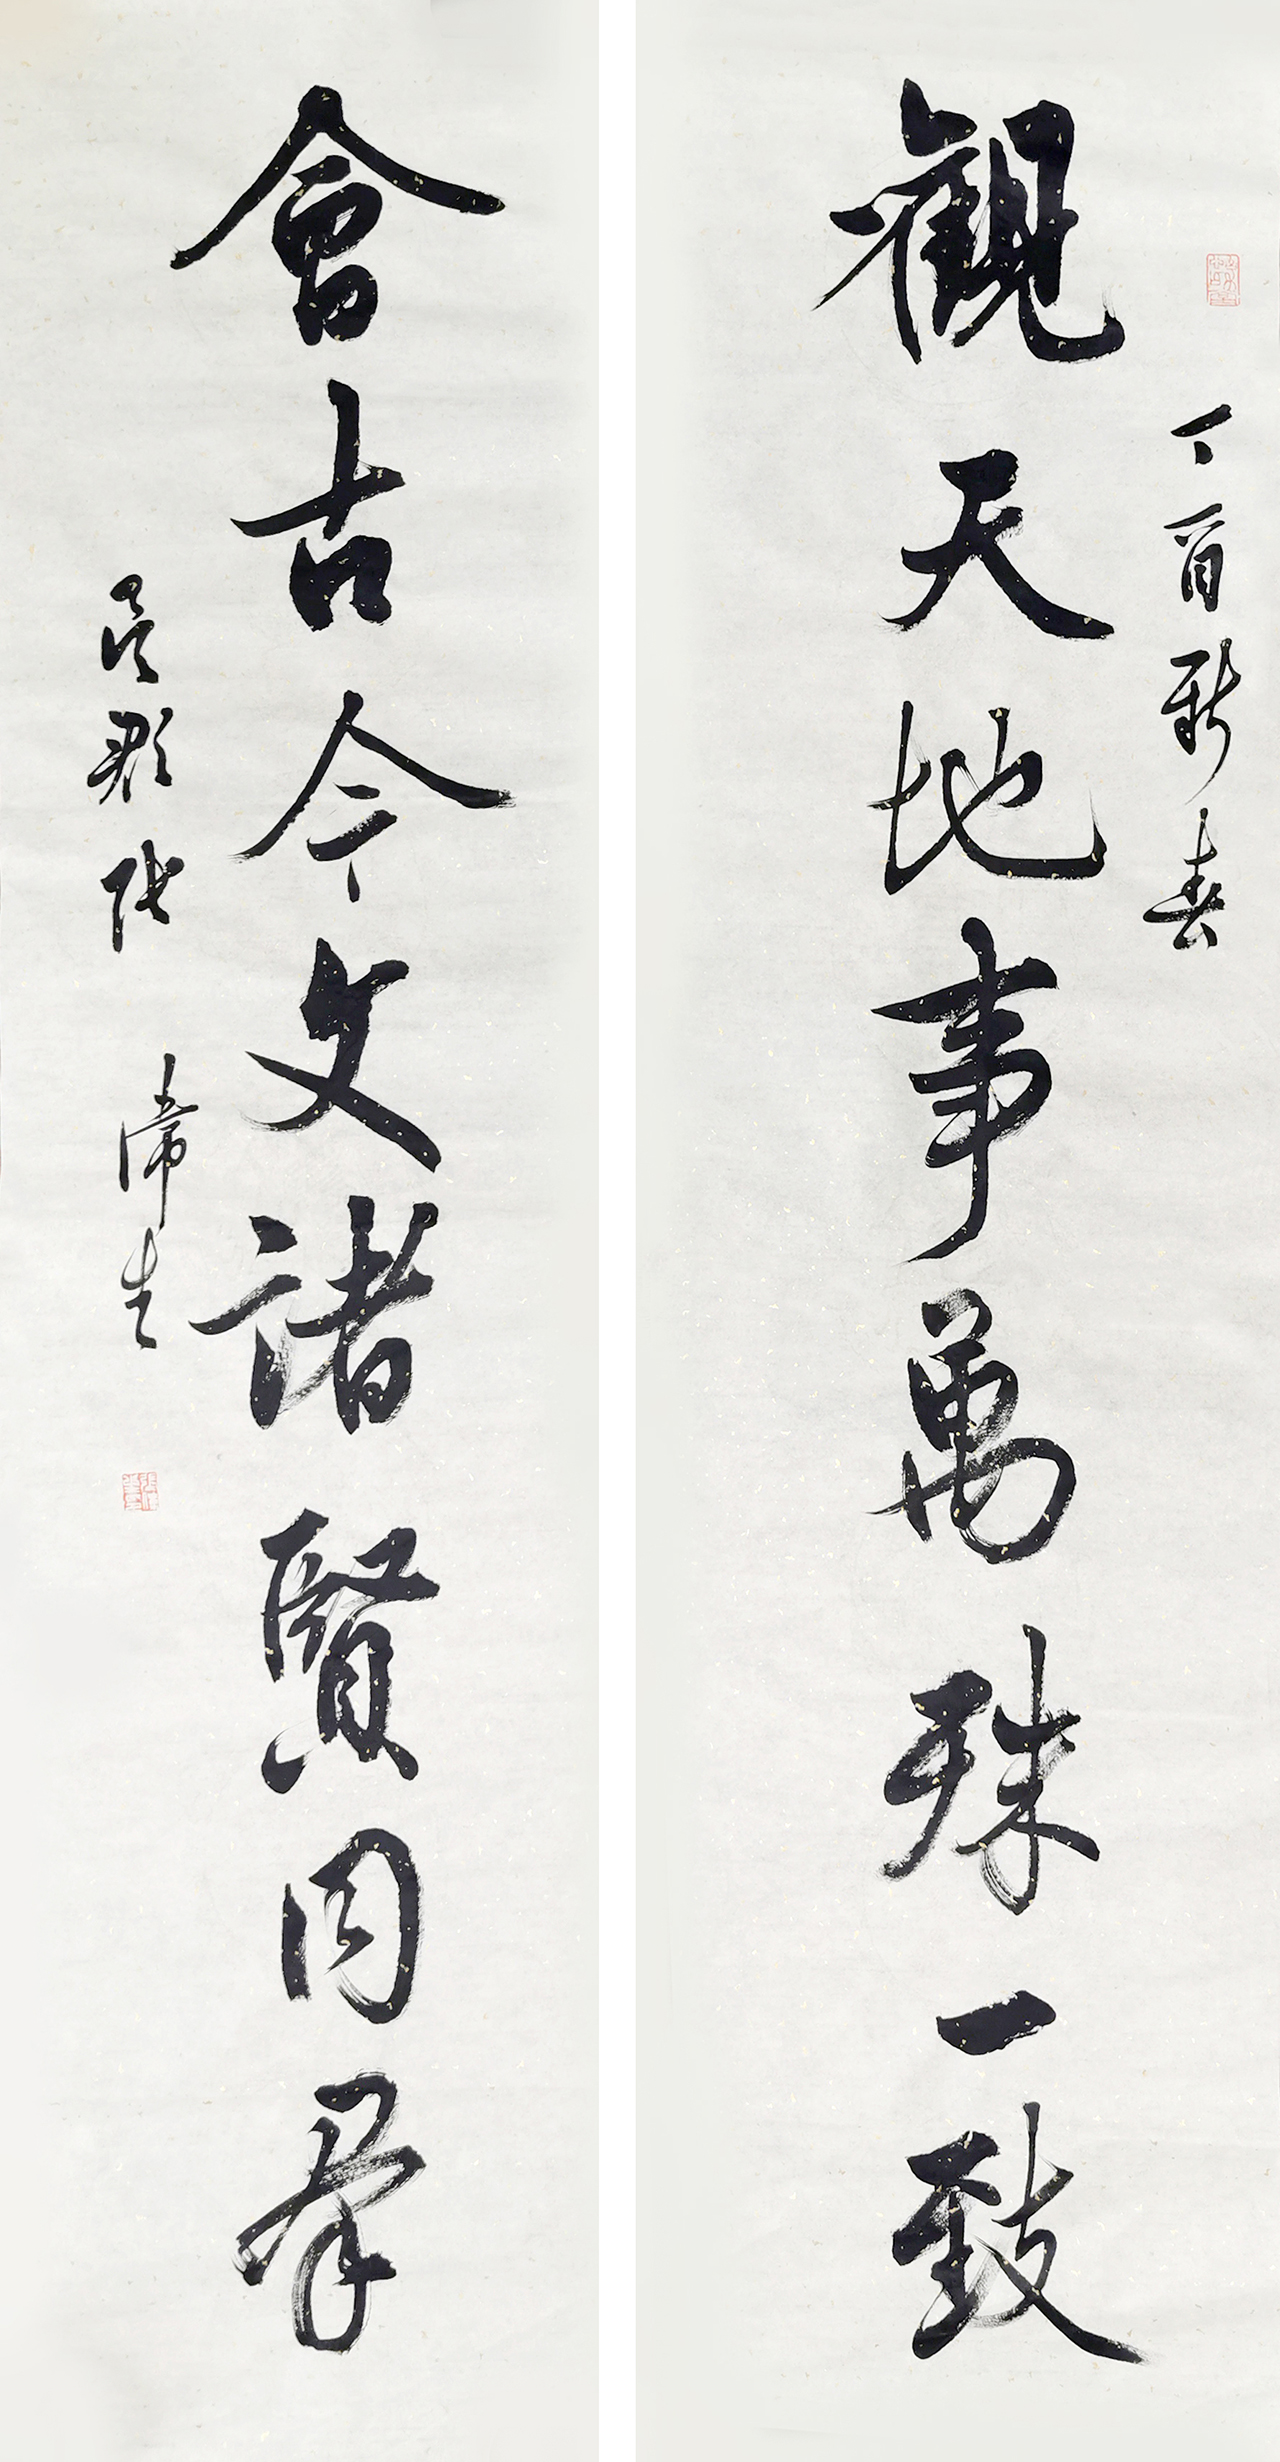 丁酉新春
觀天地事萬殊一致
會古今文諸賢同羣
吴郡張